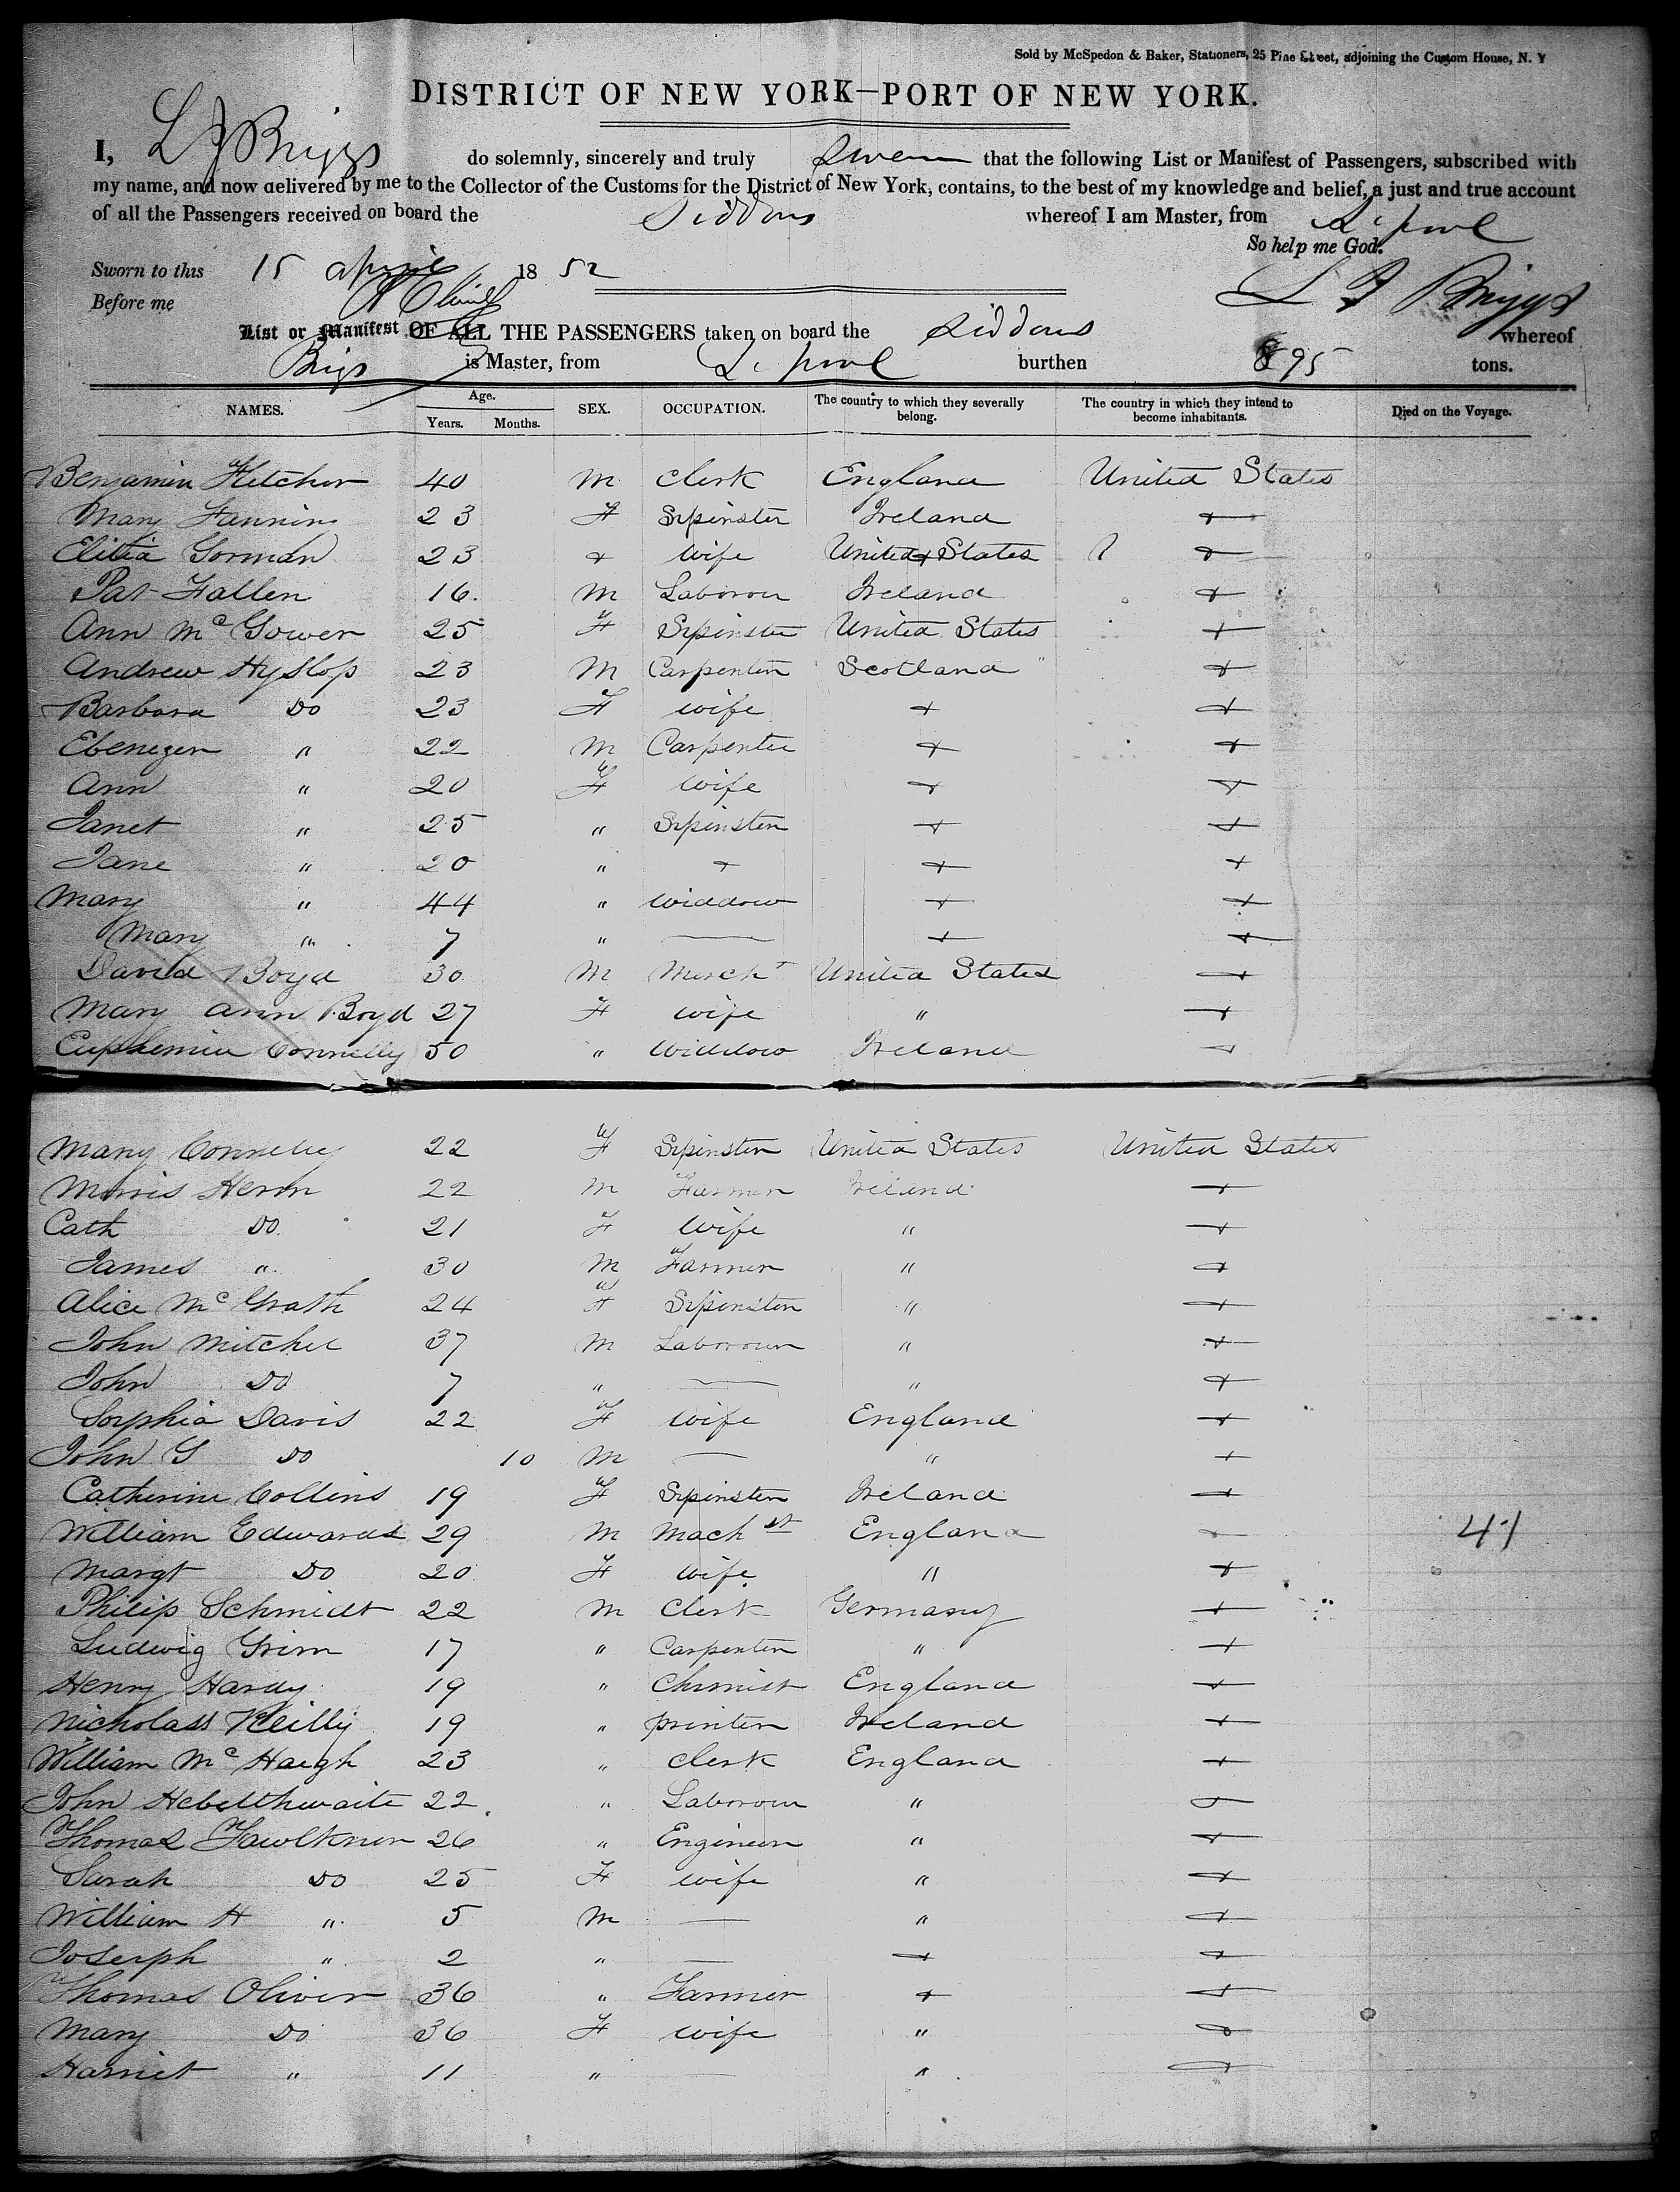 Sold by McSpedon & Baker, Stationers, 25 Pine Street, adjoining the Custom House, N. Y
DISTRICT OF NEW YORK—PORT OF NEW YORK.
I, L J Briggs do solemnly, sincerely and truly swear that the following List or Manifest of Passengers, subscribed with
my name, and now delivered by me to the Collector of the Customs for the District of New York, contains, to the best of my knowledge and belief, a just and true account
of all the Passengers received on board the Siddons whereof I am Master, from L. pool
So help me God.
Sworn to this 15 April 1852
Before me L J Briggs
List or Manifest OF ALL THE PASSENGERS taken on board the Siddons whereof
Brigs is Master, from L. pool burthen 895 tons.
NAMES. Age. Years. Months. SEX. OCCUPATION. The country to which they severally belong. The country in which they intend to become inhabitants. Died on the Voyage.
Benjamin Fletcher 40 M Clerk England United States
Mary Fanning 23 F Spinster Ireland +
Elitia Gorman 23 + Wife United States +
Pat Fallen 16. M Laborour Ireland +
Ann Mc Gower 25 F Spinster United States +
Andrew Hyslop 23 M Carpenter Scotland " +
Barbara Do 23 F Wife + +
Ebenezer " 22 M Carpenter + +
Ann " 20 F Wife + +
Janet " 25 " Spinster + +
Jane " 20 " + + +
Mary " 44 " Widdow + +
Mary " 7 " — + +
David Boyd 30 M Mercht United States +
Mary Ann Boyd 27 F Wife " +
Euphemia Connelly 50 " Widdow Ireland +
Mary Connelly 22 F Spinster United States United States
Morris Heron 22 M Farmer Ireland +
Cath Do 21 F Wife " +
James " 30 M Farmer " +
Alice Mc Grath 24 F Spinster " +
John Mitchel 37 M Laborour " +
John Do 7 " — " +
Sorphia Davis 22 F Wife England +
John G Do 10 M — " +
Catherine Collins 19 F Spinster Ireland +
William Edwards 29 M Mach st England + 41
Margt Do 20 F Wife " +
Philip Schmidt 22 M Clerk Germany +
Ludwig Grim 17 " Carpenter " +
Henry Hardy 19 " Chimist England +
Nicholass Reilly 19 " printer Ireland +
William Mc Haigh 23 " Clerk England +
John Hebelthwaite 22 " Laborour " +
Thomas Fawlkner 26 " Engineer " +
Sarah Do 25 F Wife " +
William H " 5 M — " +
Joserph " 2 " — + +
Thomas Oliver 36 " Farmer + +
Mary Do 36 F Wife " +
Harriet " 11 " — " +